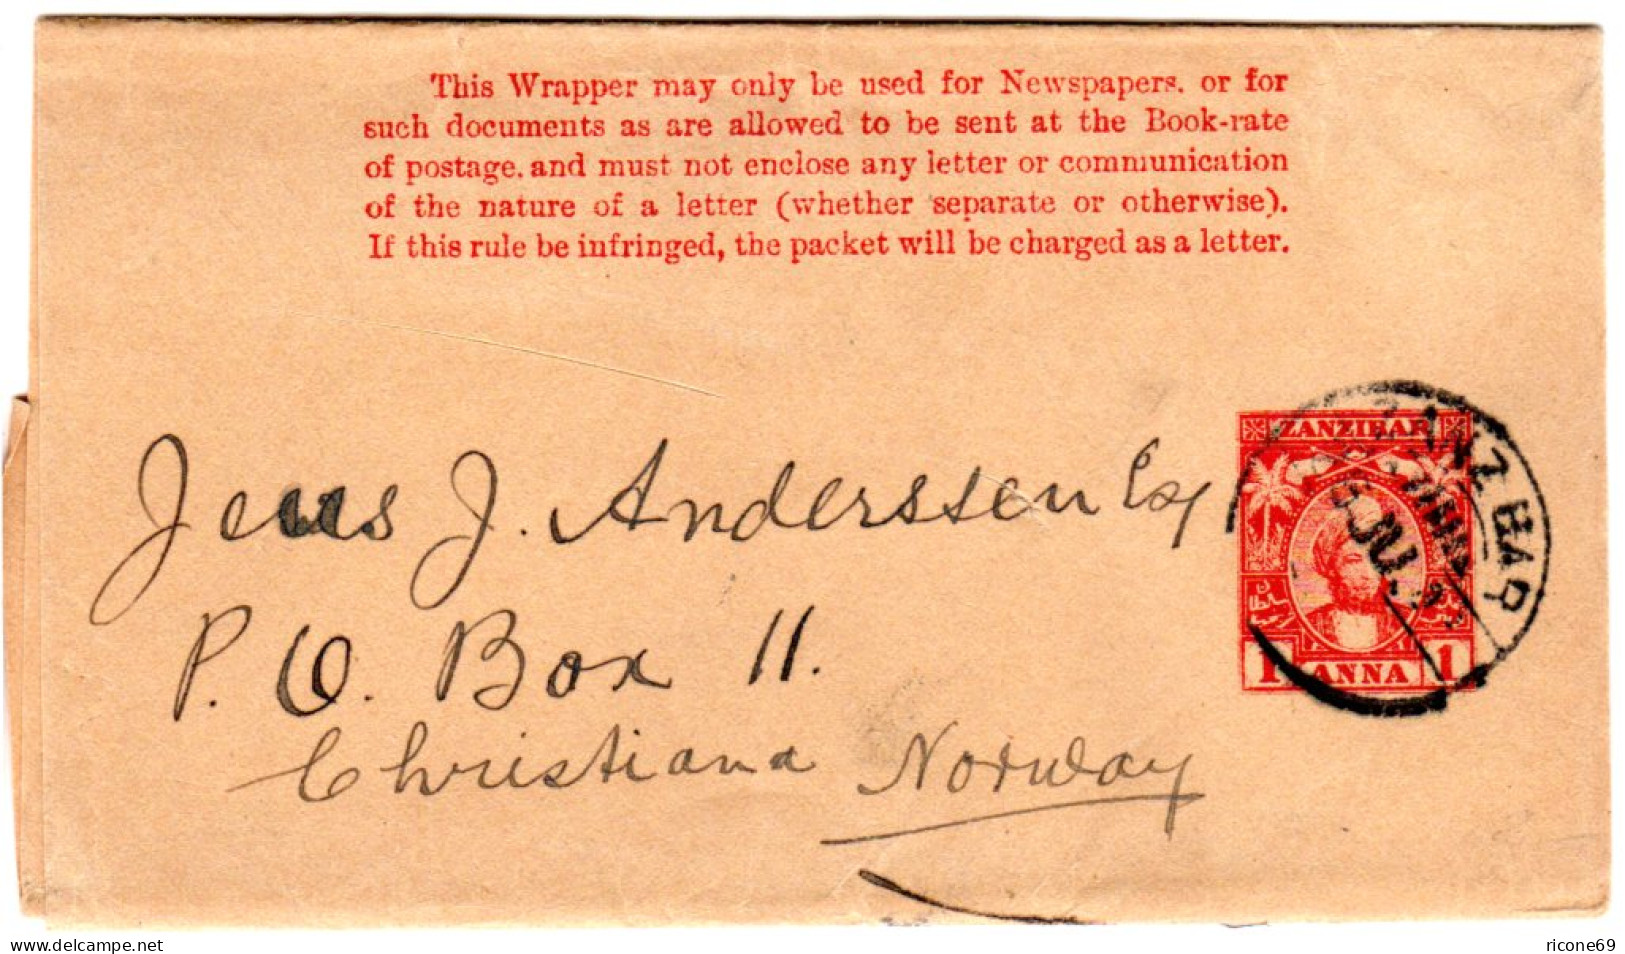 This Wrapper may only be used for Newspapers. or for
such documents as are allowed to be sent at the Book-rate
of postage. and must not enclose any letter or communication
of the nature of a letter (whether separate or otherwise).
If this rule be infringed, the packet will be charged as a letter.
Jens J. Anderssen Esq
P. O. Box 11.
Christiana Norway
ZANZIBAR
ZANZIBAR
1 ANNA 1
www.delcampe.net
ricone69